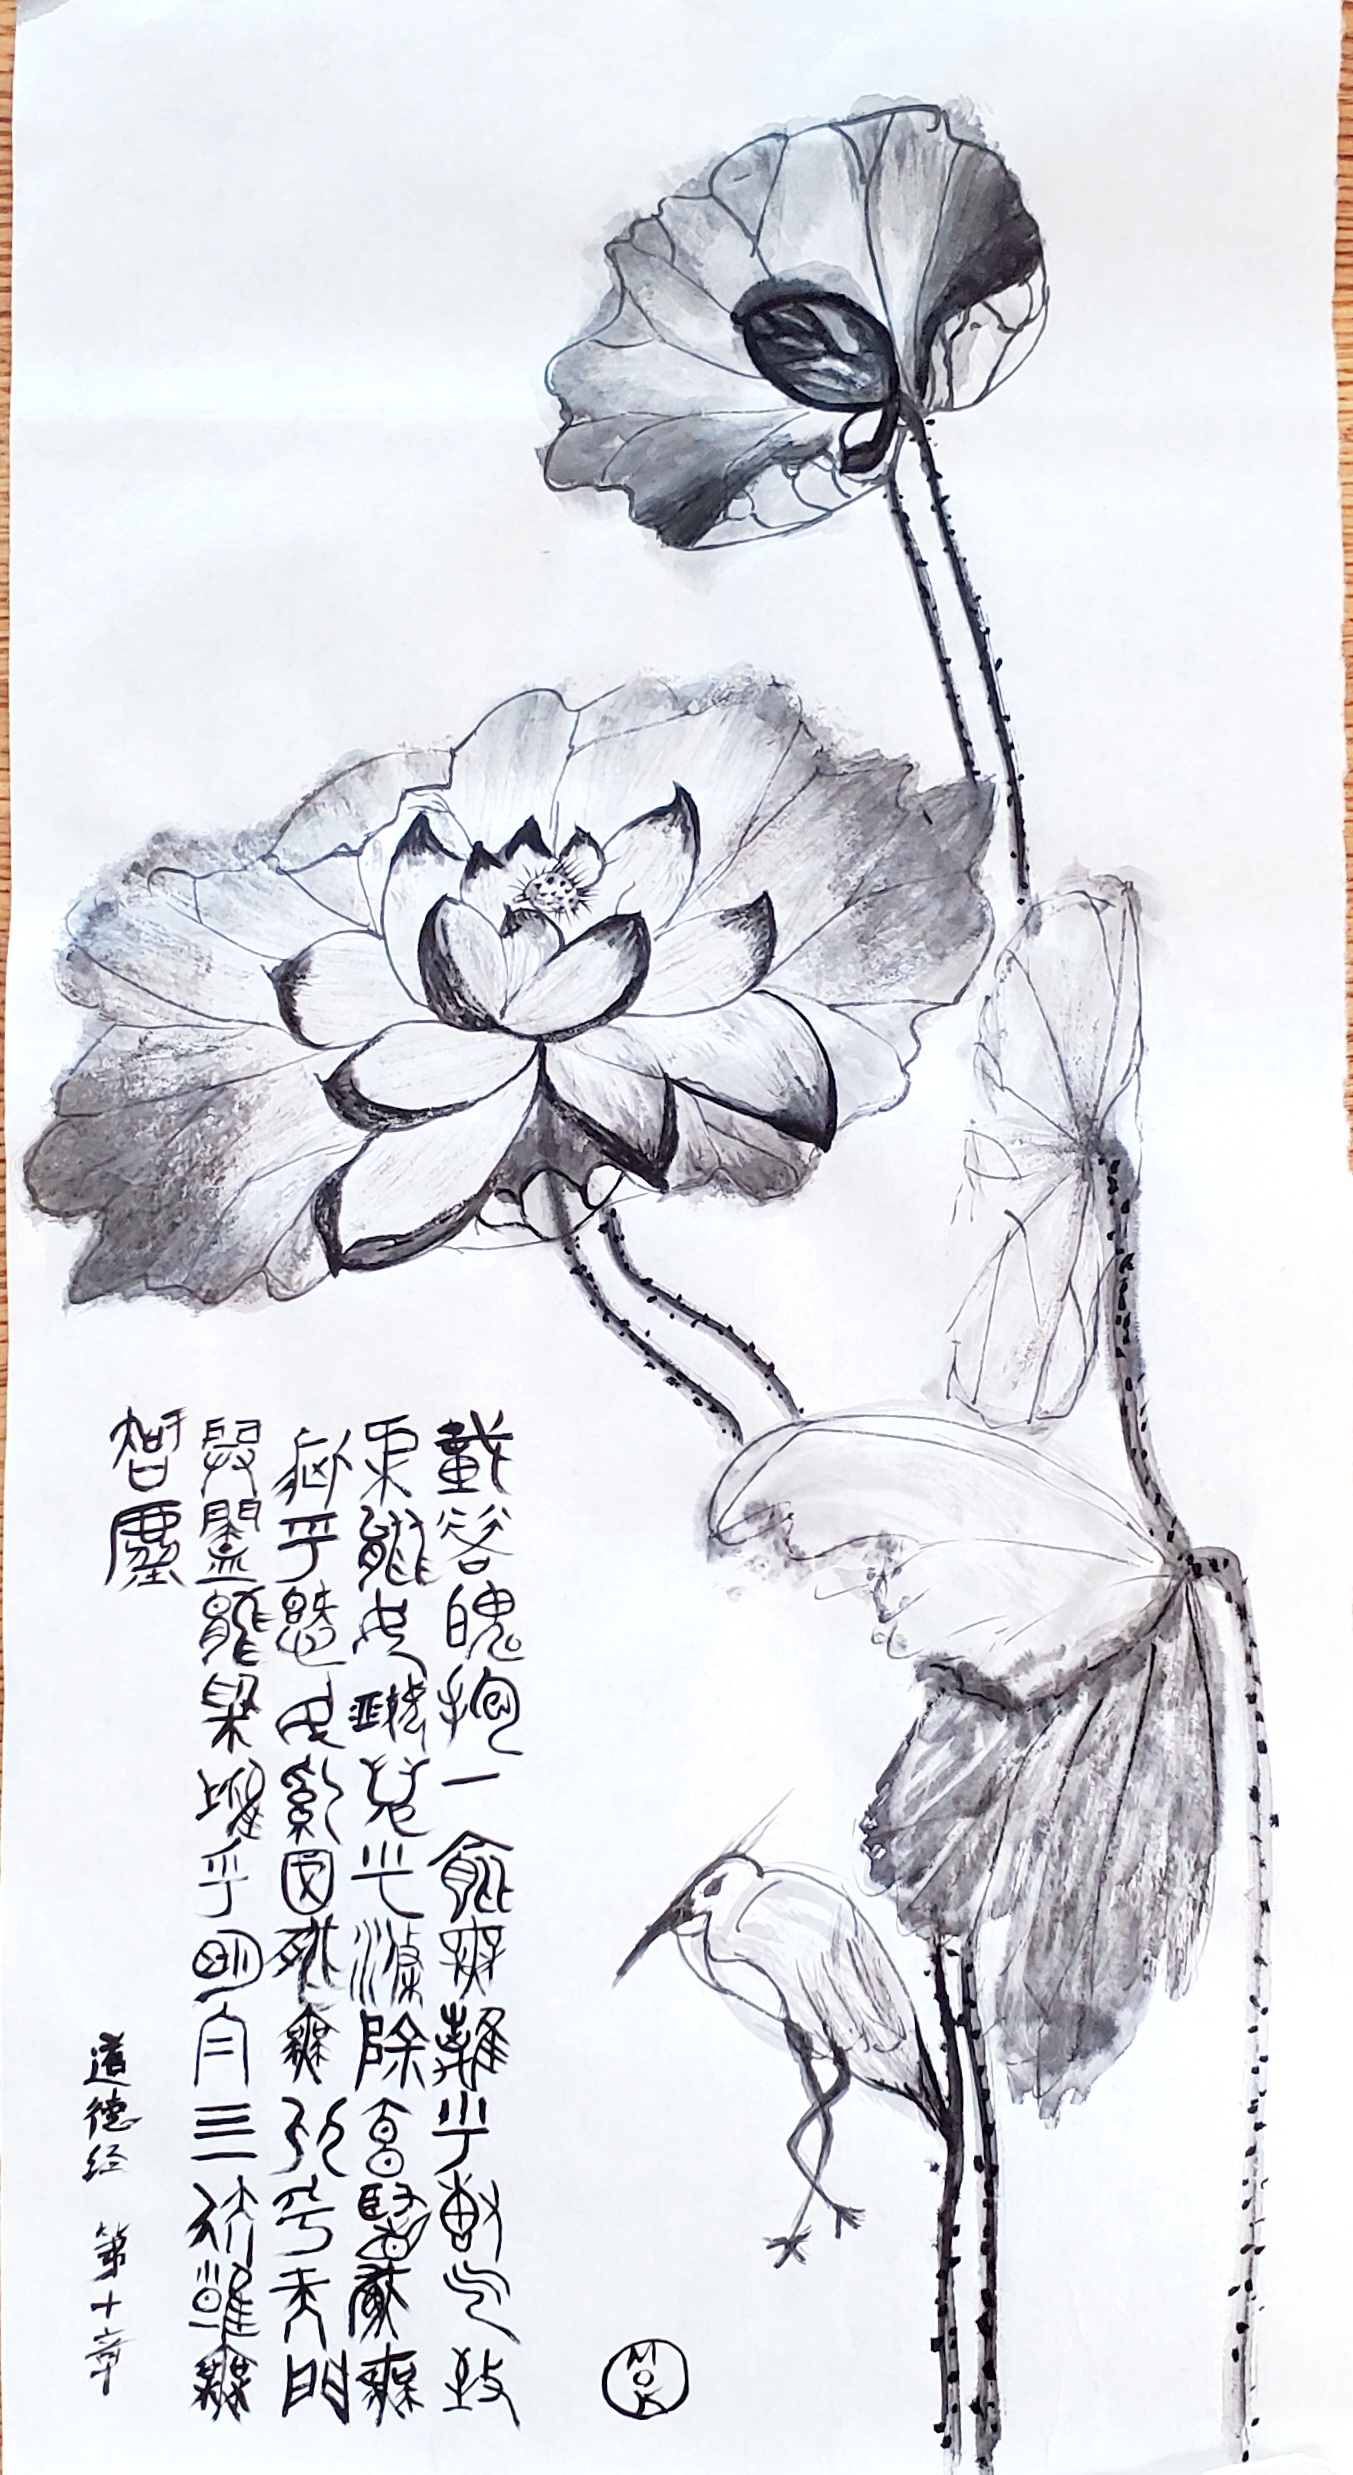 載營魄抱一能無離乎專氣致
柔能如嬰兒乎滌除玄覽能無
疵乎愛民治國能無為乎天門
開闔能為雌乎明白四達能無
智
道德经 第十章
MOK